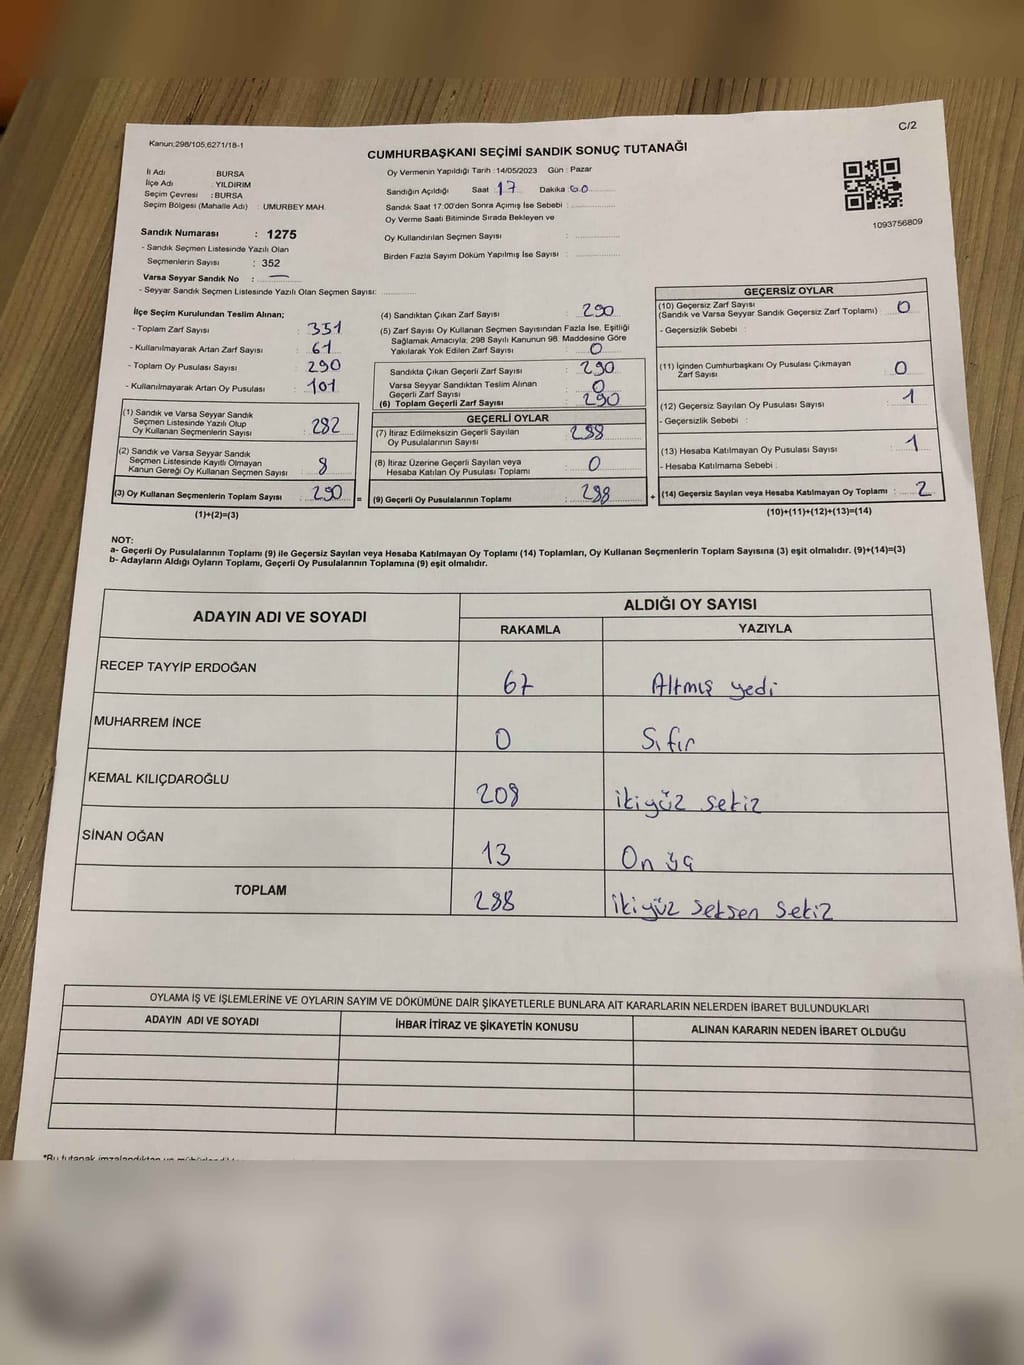 C/2
Kanun:298/105;6271/18-1
CUMHURBAŞKANI SEÇİMİ SANDIK SONUÇ TUTANAĞI
İli Adı : BURSA
İlçe Adı : YILDIRIM
Seçim Çevresi : BURSA
Seçim Bölgesi (Mahalle Adı) : UMURBEY MAH.
Oy Vermenin Yapıldığı Tarih :14/05/2023 Gün : Pazar
Sandığın Açıldığı Saat 17 Dakika 60
Sandık Saat 17:00'den Sonra Açımış İse Sebebi :
Oy Verme Saati Bitiminde Sırada Bekleyen ve
Oy Kullandırılan Seçmen Sayısı :
Birden Fazla Sayım Döküm Yapılmış İse Sayısı :
1093756809
Sandık Numarası : 1275
- Sandık Seçmen Listesinde Yazılı Olan
Seçmenlerin Sayısı : 352
Varsa Seyyar Sandık No : —
- Seyyar Sandık Seçmen Listesinde Yazılı Olan Seçmen Sayısı:
İlçe Seçim Kurulundan Teslim Alınan;
- Toplam Zarf Sayısı : 351
- Kullanılmayarak Artan Zarf Sayısı : 61
- Toplam Oy Pusulası Sayısı : 290
- Kullanılmayarak Artan Oy Pusulası : 101
(1) Sandık ve Varsa Seyyar Sandık
Seçmen Listesinde Yazılı Olup
Oy Kullanan Seçmenlerin Sayısı : 282
(2) Sandık ve Varsa Seyyar Sandık
Seçmen Listesinde Kayıtlı Olmayan
Kanun Gereği Oy Kullanan Seçmen Sayısı : 8
(3) Oy Kullanan Seçmenlerin Toplam Sayısı : 290 =
(1)+(2)=(3)
(4) Sandıktan Çıkan Zarf Sayısı : 290
(5) Zarf Sayısı Oy Kullanan Seçmen Sayısından Fazla İse, Eşitliği
Sağlamak Amacıyla; 298 Sayılı Kanunun 98. Maddesine Göre
Yakılarak Yok Edilen Zarf Sayısı : 0
Sandıkta Çıkan Geçerli Zarf Sayısı : 290
Varsa Seyyar Sandıktan Teslim Alınan
Geçerli Zarf Sayısı : 0
(6) Toplam Geçerli Zarf Sayısı : 290
GEÇERLİ OYLAR
(7) İtiraz Edilmeksizin Geçerli Sayılan
Oy Pusulalarının Sayısı : 288
(8) İtiraz Üzerine Geçerli Sayılan veya
Hesaba Katılan Oy Pusulası Toplamı : 0
(9) Geçerli Oy Pusulalarının Toplamı : 288 +
GEÇERSİZ OYLAR
(10) Geçersiz Zarf Sayısı
(Sandık ve Varsa Seyyar Sandık Geçersiz Zarf Toplamı) : 0
- Geçersizlik Sebebi :
(11) İçinden Cumhurbaşkanı Oy Pusulası Çıkmayan
Zarf Sayısı : 0
(12) Geçersiz Sayılan Oy Pusulası Sayısı : 1
- Geçersizlik Sebebi :
(13) Hesaba Katılmayan Oy Pusulası Sayısı : 1
- Hesaba Katılmama Sebebi :
(14) Geçersiz Sayılan veya Hesaba Katılmayan Oy Toplamı : 2
(10)+(11)+(12)+(13)=(14)
NOT:
a- Geçerli Oy Pusulalarının Toplamı (9) ile Geçersiz Sayılan veya Hesaba Katılmayan Oy Toplamı (14) Toplamları, Oy Kullanan Seçmenlerin Toplam Sayısına (3) eşit olmalıdır. (9)+(14)=(3)
b- Adayların Aldığı Oyların Toplamı, Geçerli Oy Pusulalarının Toplamına (9) eşit olmalıdır.
ADAYIN ADI VE SOYADI ALDIĞI OY SAYISI
RAKAMLA YAZIYLA
RECEP TAYYİP ERDOĞAN 67 Altmış yedi
MUHARREM İNCE 0 Sıfır
KEMAL KILIÇDAROĞLU 208 ikiyüz sekiz
SİNAN OĞAN 13 On üç
TOPLAM 288 ikiyüz seksen sekiz
OYLAMA İŞ VE İŞLEMLERİNE VE OYLARIN SAYIM VE DÖKÜMÜNE DAİR ŞİKAYETLERLE BUNLARA AİT KARARLARIN NELERDEN İBARET BULUNDUKLARI
ADAYIN ADI VE SOYADI İHBAR İTİRAZ VE ŞİKAYETİN KONUSU ALINAN KARARIN NEDEN İBARET OLDUĞU
*Bu tutanak imzalandıktan